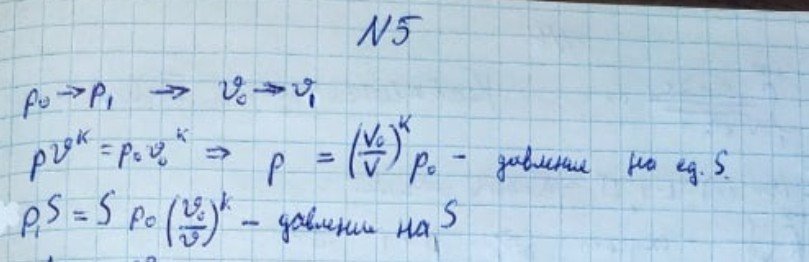 N5
p₀ → p₁ → v₀ → v₁
pv^k = p₀v₀^k ⇒ p = (V₀/V)^k p₀ - давление на ед. S.
p₁S = S p₀ (v₀/v)^k - давление на S